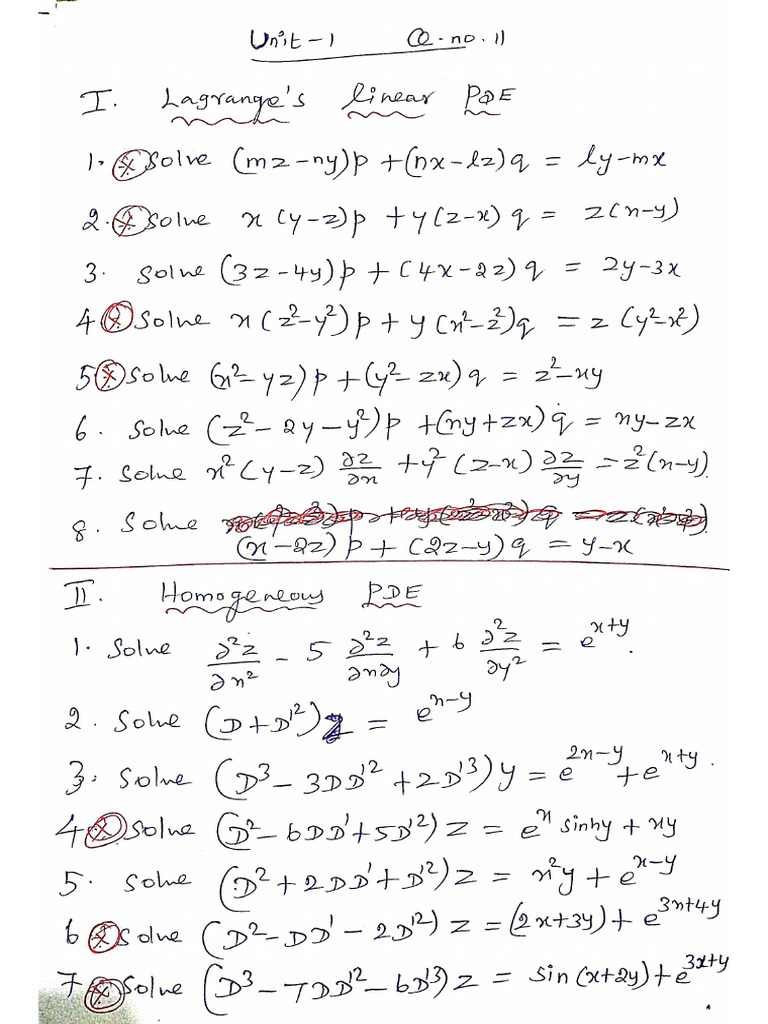 Unit-1 Q.no.11
I. Lagrange's linear PDE
1. Solve (mz-ny)p +(nx-lz)q = ly-mx
2. Solve x(y-z)p + y(z-x)q = z(x-y)
3. Solve (3z-4y)p + (4x-2z)q = 2y-3x
4 Solve x(z²-y²)p + y(x²-z²)q = z(y²-x²)
5 Solve (x²-yz)p + (y²-zx)q = z²-xy
6. Solve (z²-2y-y²)p +(xy+zx)q = xy-zx
7. Solve x²(y-z) ∂z/∂x + y²(z-x) ∂z/∂y = z²(x-y).
8. Solve
(x-2z)p + (2z-y)q = y-x
II. Homogeneous PDE
1. Solve ∂²z/∂x² - 5 ∂²z/∂x∂y + 6 ∂²z/∂y² = e^{x+y}.
2. Solve (D+D'²)z = e^{x-y}
3. Solve (D³-3DD'²+2D'³)y = e^{2x-y}+e^{x+y}.
4 Solve (D²-6DD'+5D'²)z = e^x sinhy + xy
5. Solve (D²+2DD'+D'²)z = x²y+e^{x-y}
6 Solve (D²-DD'-2D'²)z = (2x+3y)+e^{3x+4y}
7 Solve (D³-7DD'²-6D'³)z = sin(x+2y)+e^{3x+y}